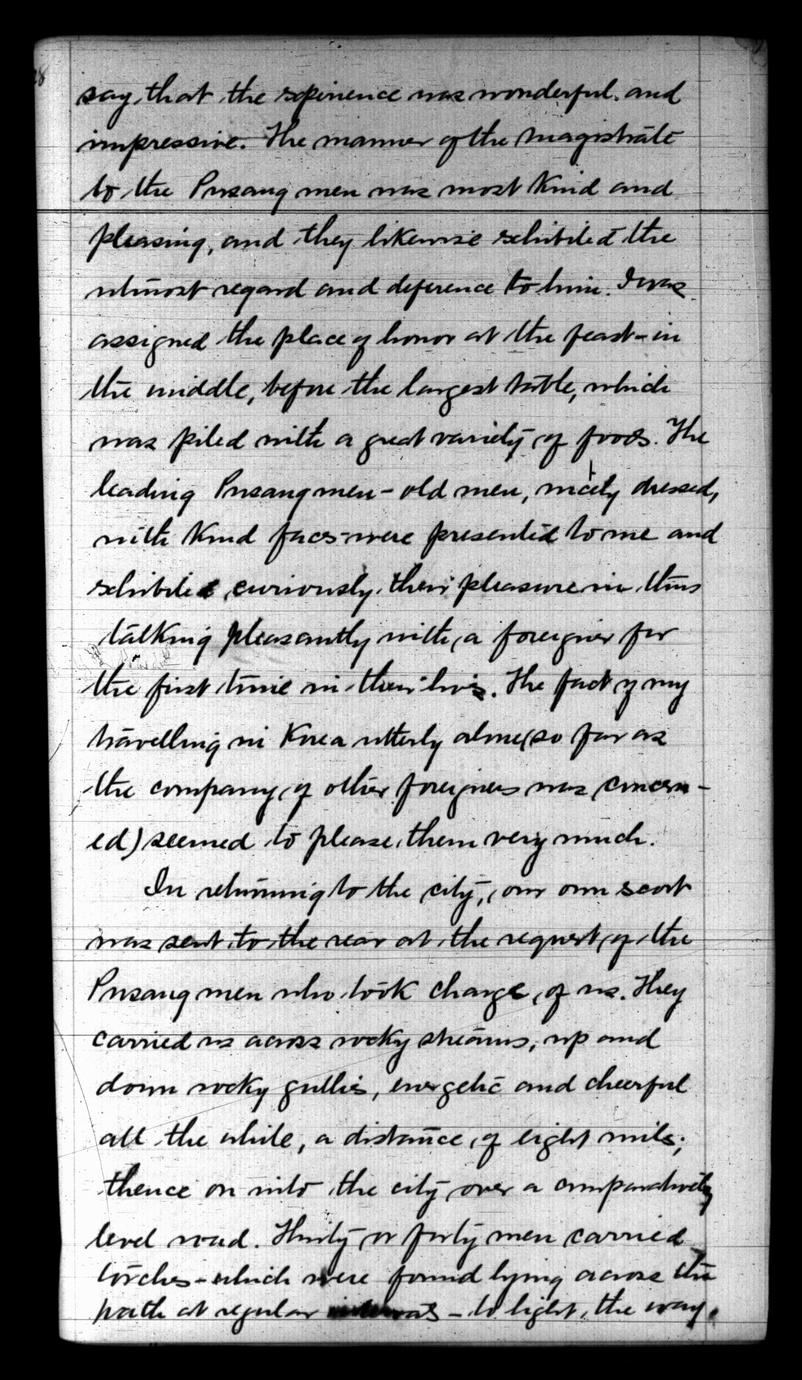 say that the experience was wonderful and
impressive. The manner of the magistrate
to the Pusang men was most kind and
pleasing, and they likewise exhibited the
utmost regard and deference to him. I was
assigned the place of honor at the feast - in
the middle, before the largest table, which
was piled with a great variety of foods. The
leading Pusang men - old men, nicely dressed,
with kind faces - were presented to me and
exhibited curiously their pleasure in thus
talking pleasantly with a foreigner for
the first time in their lives. The fact of my
travelling in Korea utterly alone (so far as
the company of other foreigners was concern-
ed) seemed to please them very much.
In returning to the city, our own escort
was sent to the rear at the request of the
Pusang men who took charge of us. They
carried us across rocky streams, up and
down rocky gullies, energetic and cheerful
all the while, a distance of eight miles;
thence on into the city over a comparatively
level road. Thirty or forty men carried
torches - which were found lying across the
path at regular intervals - to light the way.